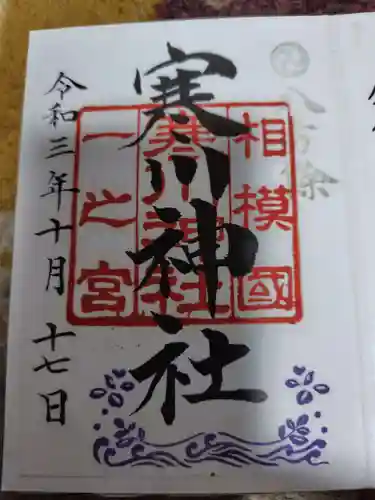 八方除
相模國
寒川神社
一之宮
寒川神社
令和三年十月十七日